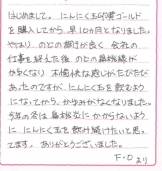 はじめまして。にんにく玉の源ゴールド
を購入してから、早10ヵ月となりました。
やはり、のどの調子が良く、会社の
仕事を終えた後、のどの扁桃腺が
かゆくなり、不愉快な思いがたびたび
あったのですが、にんにく玉を飲むよう
になってから、かゆみがなくなりました。
今年の冬は扁桃炎にかからないよう
に、にんにく玉を飲み続けたいと思っ
てます。ありがとうございました。
F・Oより